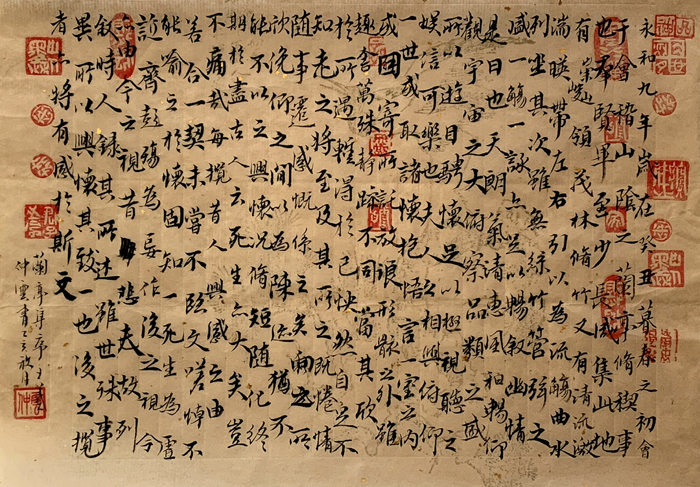 永和九年歲在癸丑暮春之初會
于會稽山陰之蘭亭脩禊事
也羣賢畢至少長咸集此地
有崇峻領茂林脩竹又有清流激
湍暎帶左右引以為流觴曲水
列坐其次雖無絲竹管弦之
盛一觴一詠亦足以暢敘幽情
是日也天朗氣清惠風和暢仰
觀宇宙之大俯察品類之盛
所以遊目騁懷足以極視聽之
娛信可樂也夫人之相與俯仰
一世或取諸懷抱悟言一室之內
或因寄所託放浪形骸之外雖
趣舍萬殊靜躁不同當其欣
於所遇輒得於己怏然自足不
知老之將至及其所之既惓情
隨事遷感慨係之矣向之所
欣俛仰之間以為陳迹猶不
能不以之興懷況脩短隨化終
期於盡古人云死生亦大矣豈
不痛哉每攬昔人興感之由
若合一契未嘗不臨文嗟悼不
能喻之於懷固知一死生為虛
誕齊彭殤為妄作後之視今
亦由今之視昔悲夫故列
敘時人錄其所述雖世殊事
異所以興懷其致一也後之攬
者亦將有感於斯文
蘭亭序
仲雲書